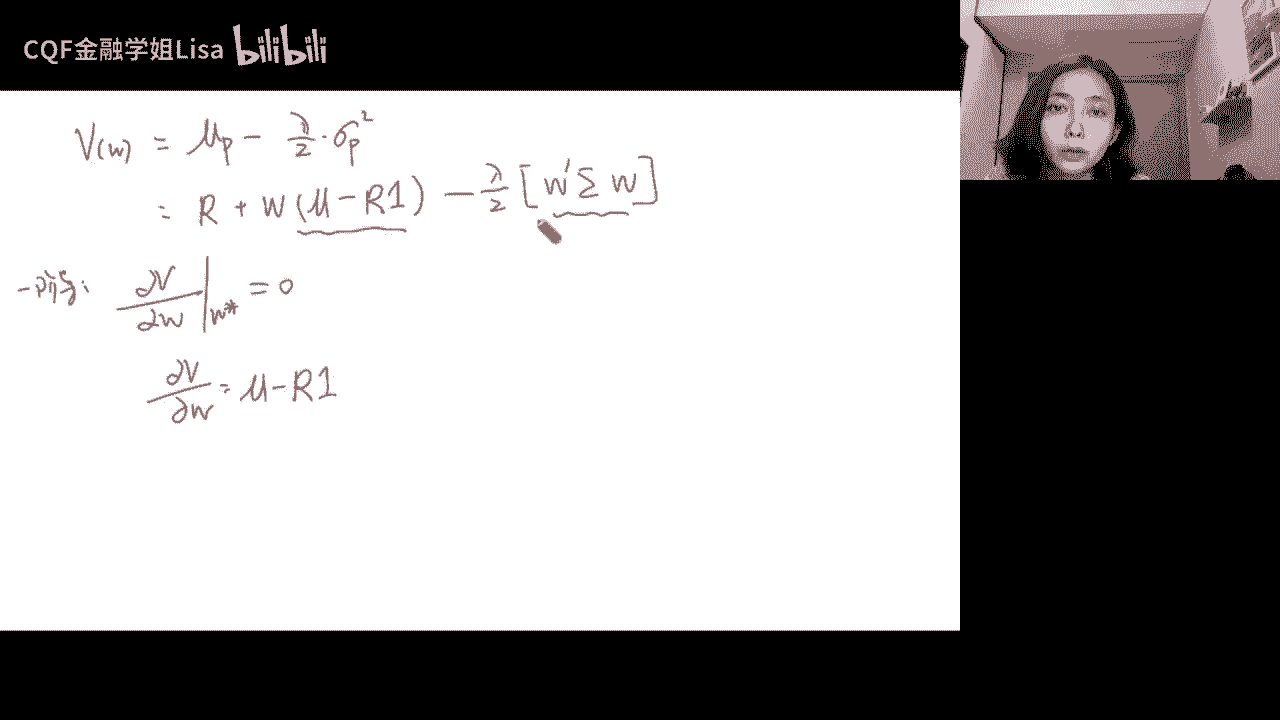 CQF金融学姐Lisa bilibili
V(w) = μp − λ/2 · σp²
= R + w(μ − R1) − λ/2 [w′Σw]
一阶导: ∂V/∂w |w* = 0
∂V/∂w = μ − R1